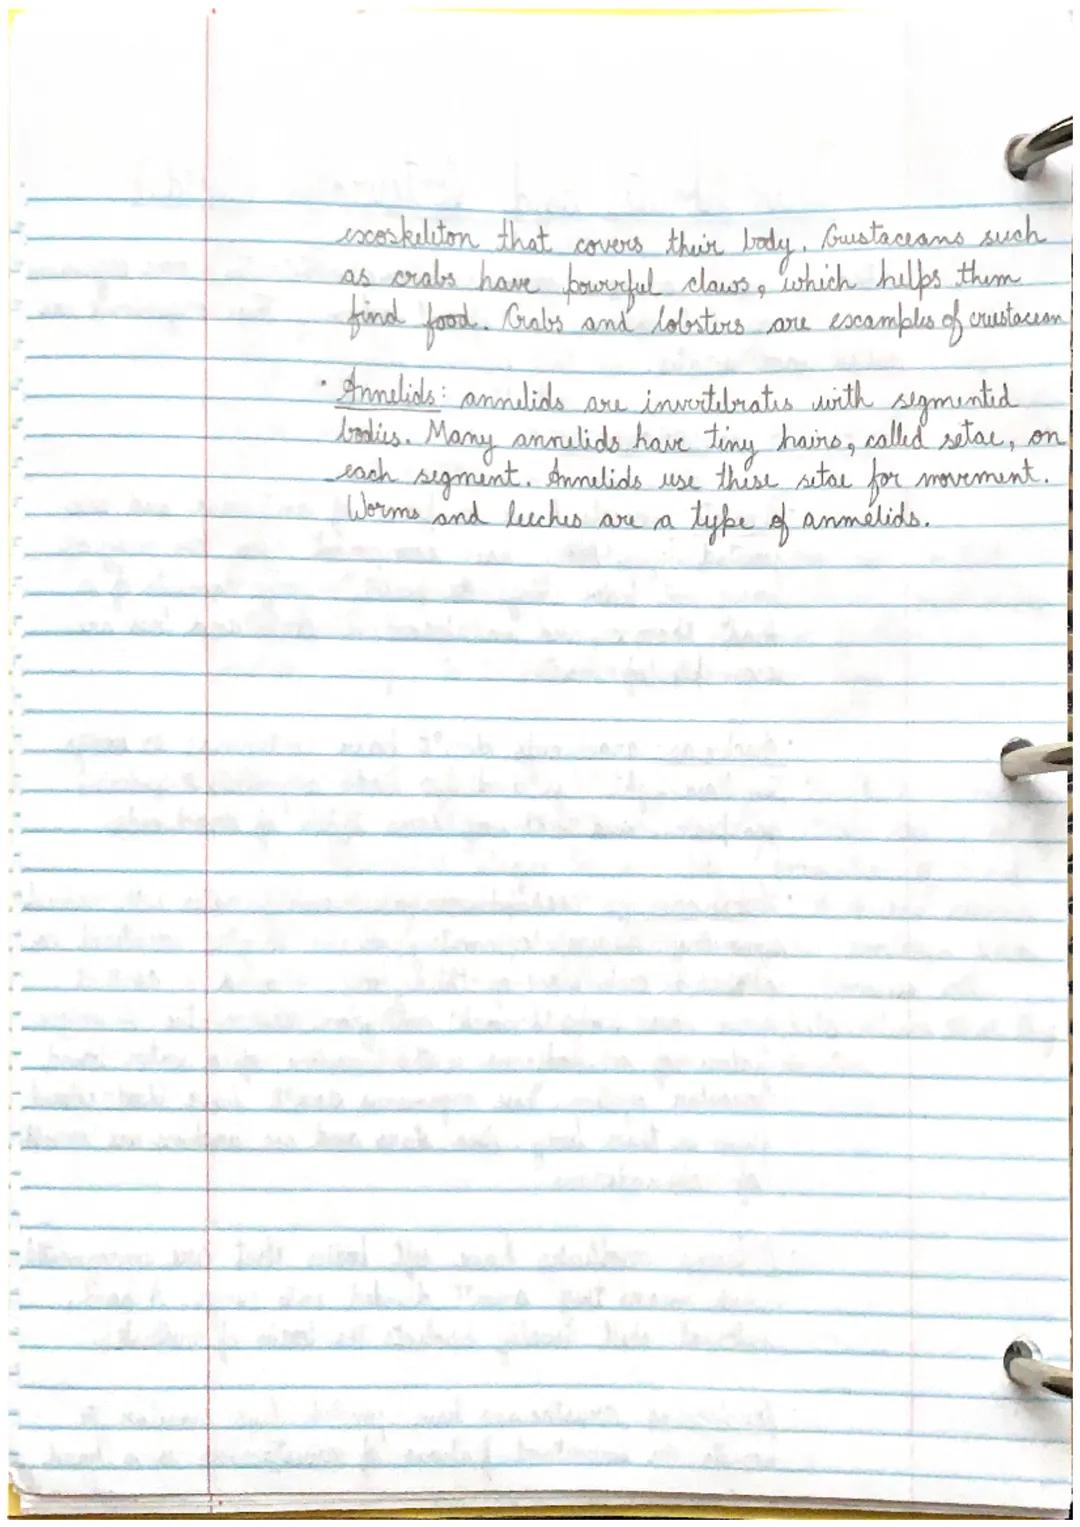 exoskeleton that covers their body. Crustaceans such
as crabs have powerful claws, which helps them
find food. Crabs and lobsters are examples of crustacean
• Annelids: annelids are invertebrates with segmented
bodies. Many annelids have tiny hairs, called setae, on
each segment. Annelids use these setae for movement.
Worms and leeches are a type of annelids.